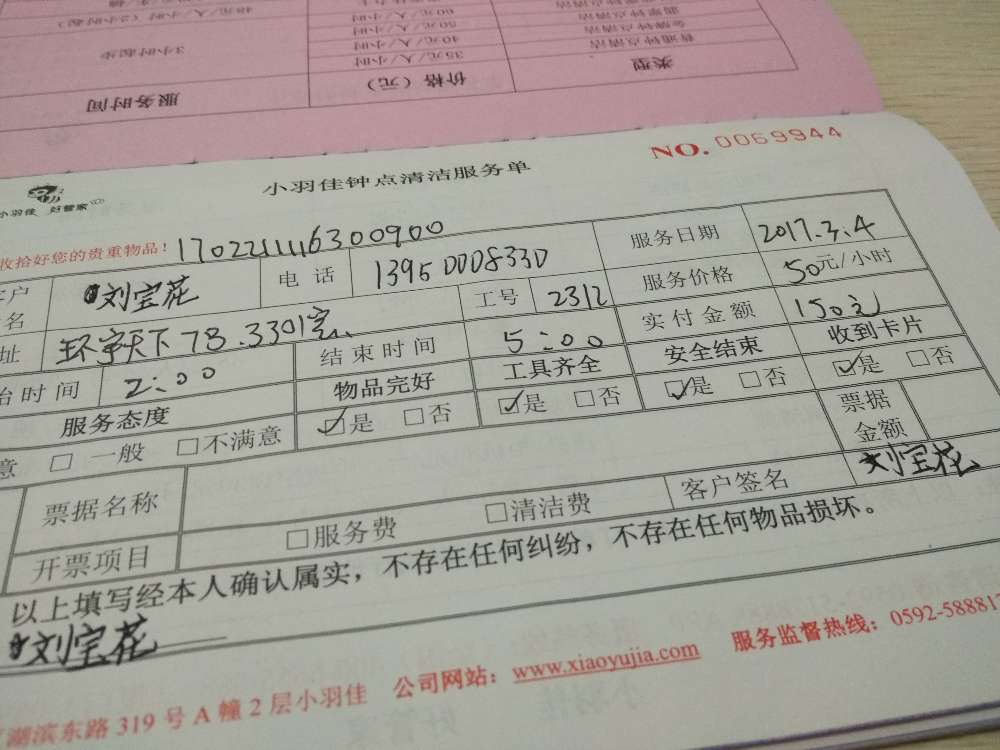 48元/人/小时 (2小时起)
60元/人/小时
50元/人/小时
40元/人/小时
普通钟点清洁
35元/人/小时
3小时起步
类型
价格（元）
服务时间
NO. 0069944
小羽佳钟点清洁服务单
小羽佳 好管家
收拾好您的贵重物品！ 170221116300900
客户 刘宝花 电话 13950008330 服务日期 2017.3.4
名 工号 2312 服务价格 50元/小时
址 环宇天下7B.3301室 实付金额 150元
始时间 2:00 结束时间 5:00 安全结束 收到卡片
服务态度 物品完好 工具齐全 ☑是 □否 ☑是 □否
意 □ 一般 □不满意 ☑是 □否 ☑是 □否 票据金额
票据名称
开票项目 □服务费 □清洁费 客户签名 刘宝花
以上填写经本人确认属实，不存在任何纠纷，不存在任何物品损坏。
刘宝花
湖滨东路319号A幢2层小羽佳 公司网站：www.xiaoyujia.com 服务监督热线：0592-588817